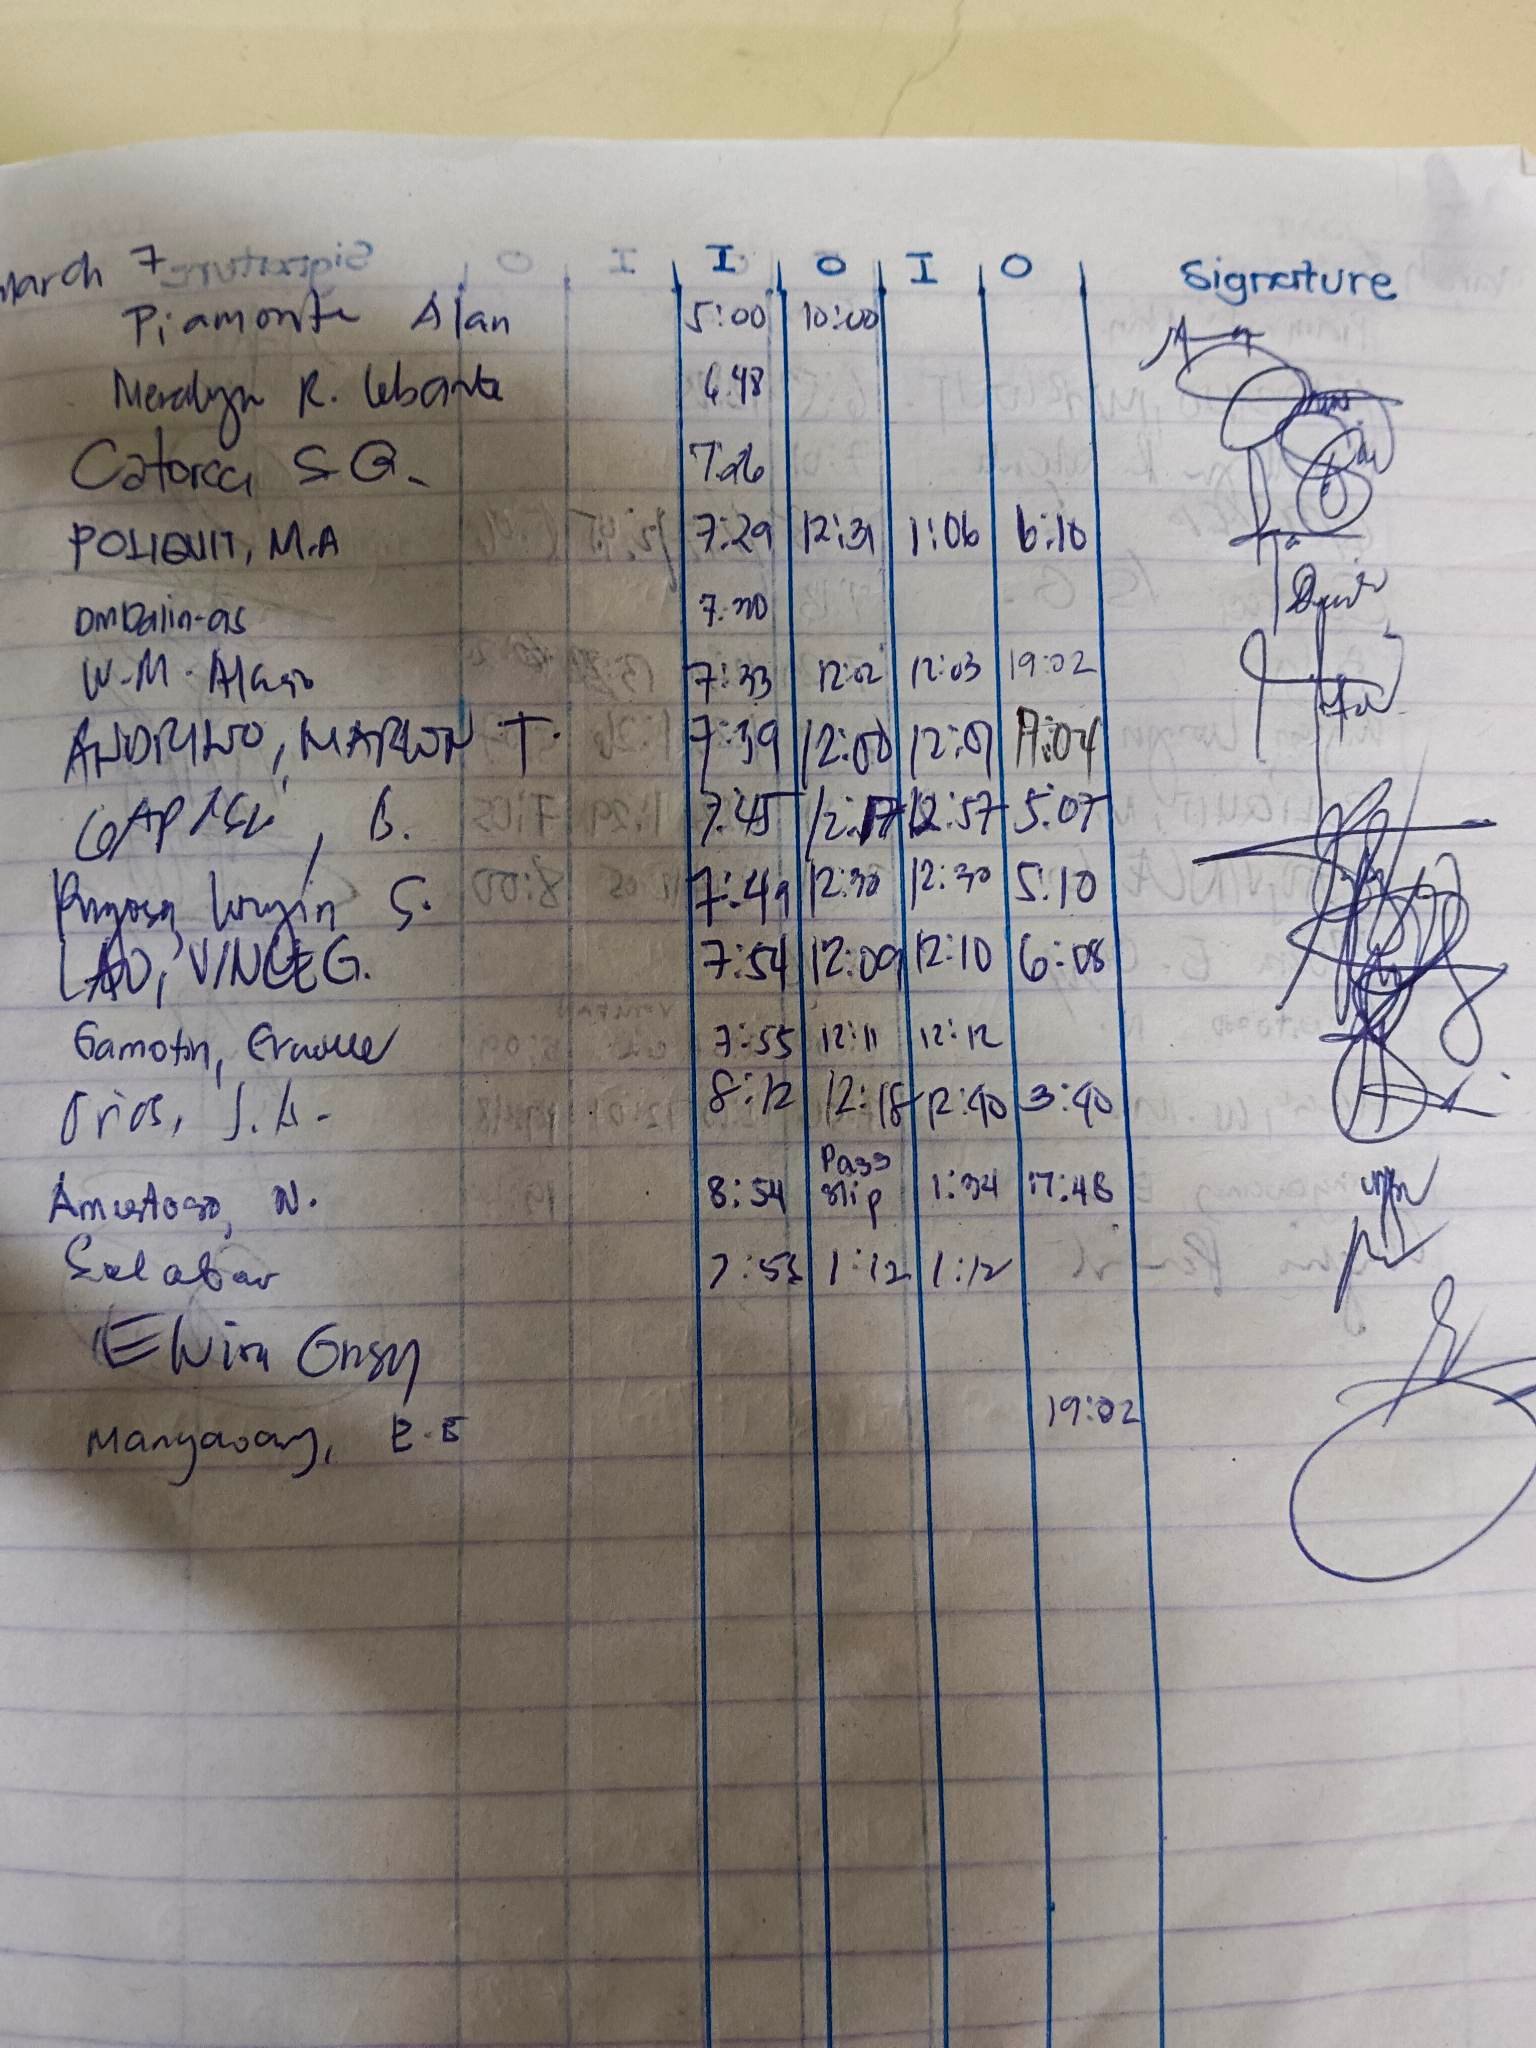 March 7 I O I O Signature
Piamonte Alan 5:00 10:00
Meralyn R. 6:48
Catorce S G. 7:26
POLIQUIT, M.A 7:29 12:31 1:06 6:10
Ombalin-as 7:30
W.M. 7:33 12:02 12:03 19:02
ANDRINO, MARLON T. 7:39 12:00 12:01 17:04
, B. 7:45 12:17 12:57 5:07
S. 7:49 12:30 12:30 5:10
LAO, VINCE G. 7:54 12:09 12:10 6:08
Gamotin, 7:55 12:11 12:12
Orios, J. A. 8:12 12:18 12:40 3:40
Amistoso, N. 8:54 Pass slip 1:34 17:48
Salabar 7:55 1:12 1:12
Elvira
Mangaoang, E.B 19:02